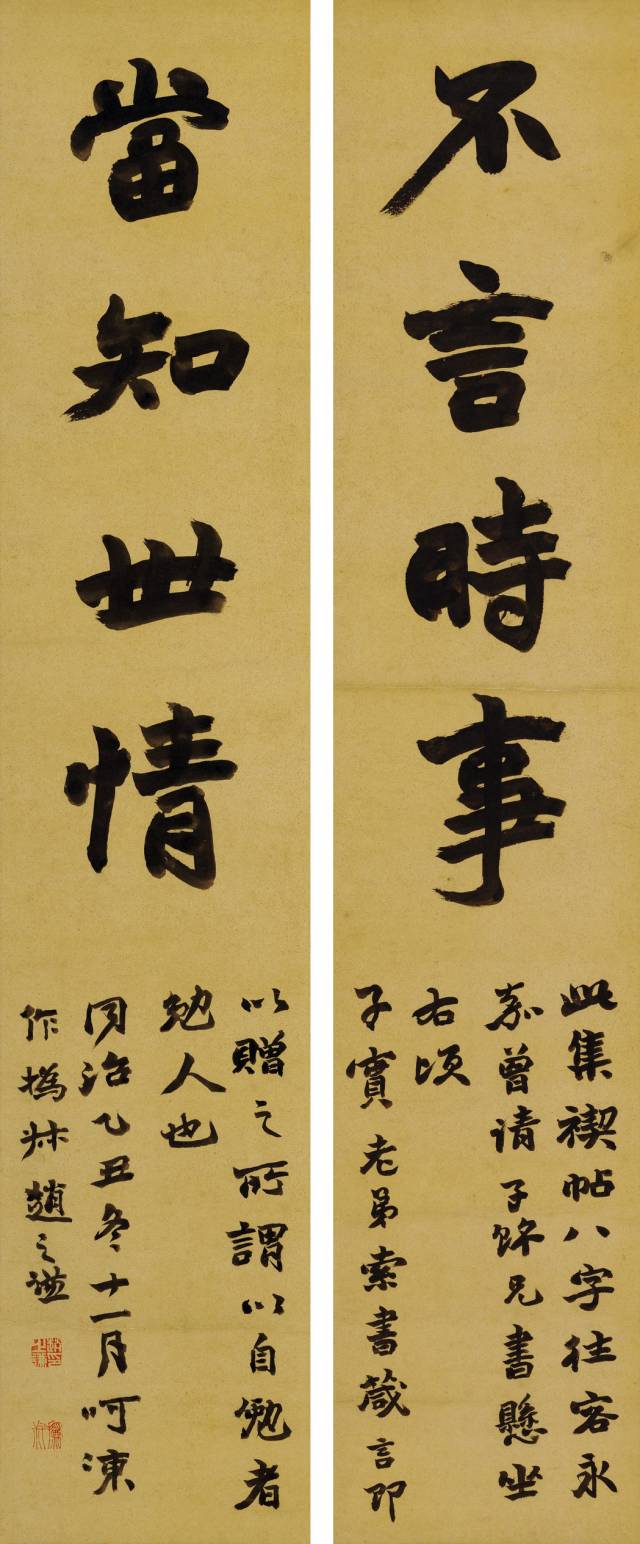 不言時事
此集禊帖八字往客永
嘉曾請子餘兄書懸坐
右頃
子實老弟索書箴言即
當知世情
以贈之所謂以自勉者
勉人也
同治乙丑冬十一月呵凍
作撝叔趙之謙